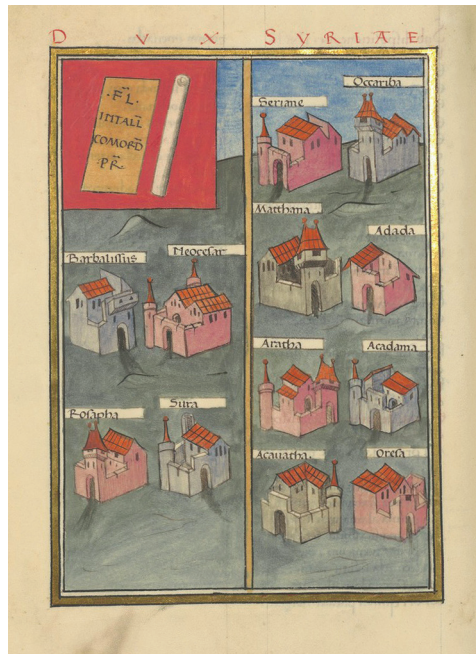 DVX SYRIAE
·FL·
INTALL
COMORD
·PR·
Barbalissus
Neocesar
Rosapha
Sura
Seriane
Occariba
Matthana
Adada
Aratha
Acadama
Acauatha·
Oresa